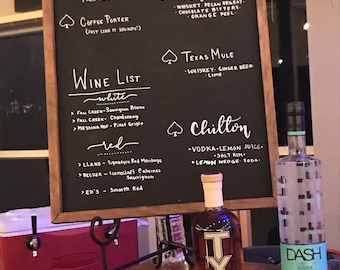 Coffee Porter
(Just like it sounds!)
Wine List
white
> Fall Creek - Sauvignon Blanc
> Fall Creek - Chardonnay
> Messina Hof - Pinot Grigio
red
> Llano - Signature Red Meritage
> Becker - Iconoclast Cabernet
Sauvignon
> Ed's - Smooth Red
Whiskey. Pecan Nougat.
Chocolate Bitters.
Orange Peel
Texas Mule
Whiskey. Ginger Beer.
Lime
Chilton
Vodka. Lemon Juice.
Salt Rim.
Lemon Wedge. Soda.
TX
DASH
VODKA